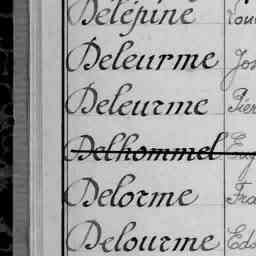 Delépine
Deleurme Jos
Deleurme Pier
Delhommel Eug
Delorme Fra
Delourme Edo